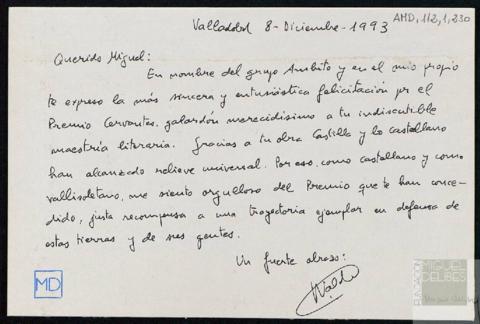 Valladolid 8-Diciembre-1993
AMD, 112, 1, 230
Querido Miguel:
En nombre del grupo Ambito y en el mio propio
te expreso la más sincera y entusiástica felicitación por el
Premio Cervantes, galardón merecidísimo a tu indiscutible
maestría literaria. Gracias a tu obra Castilla y lo castellano
han alcanzado relieve universal. Por eso, como castellano y como
vallisoletano, me siento orgulloso del Premio que te han conce-
dido, justa recompensa a una trayectoria ejemplar en defensa de
estas tierras y de sus gentes.
Un fuerte abrazo:
MD
FUNDACIÓN
MIGUEL
DELIBES